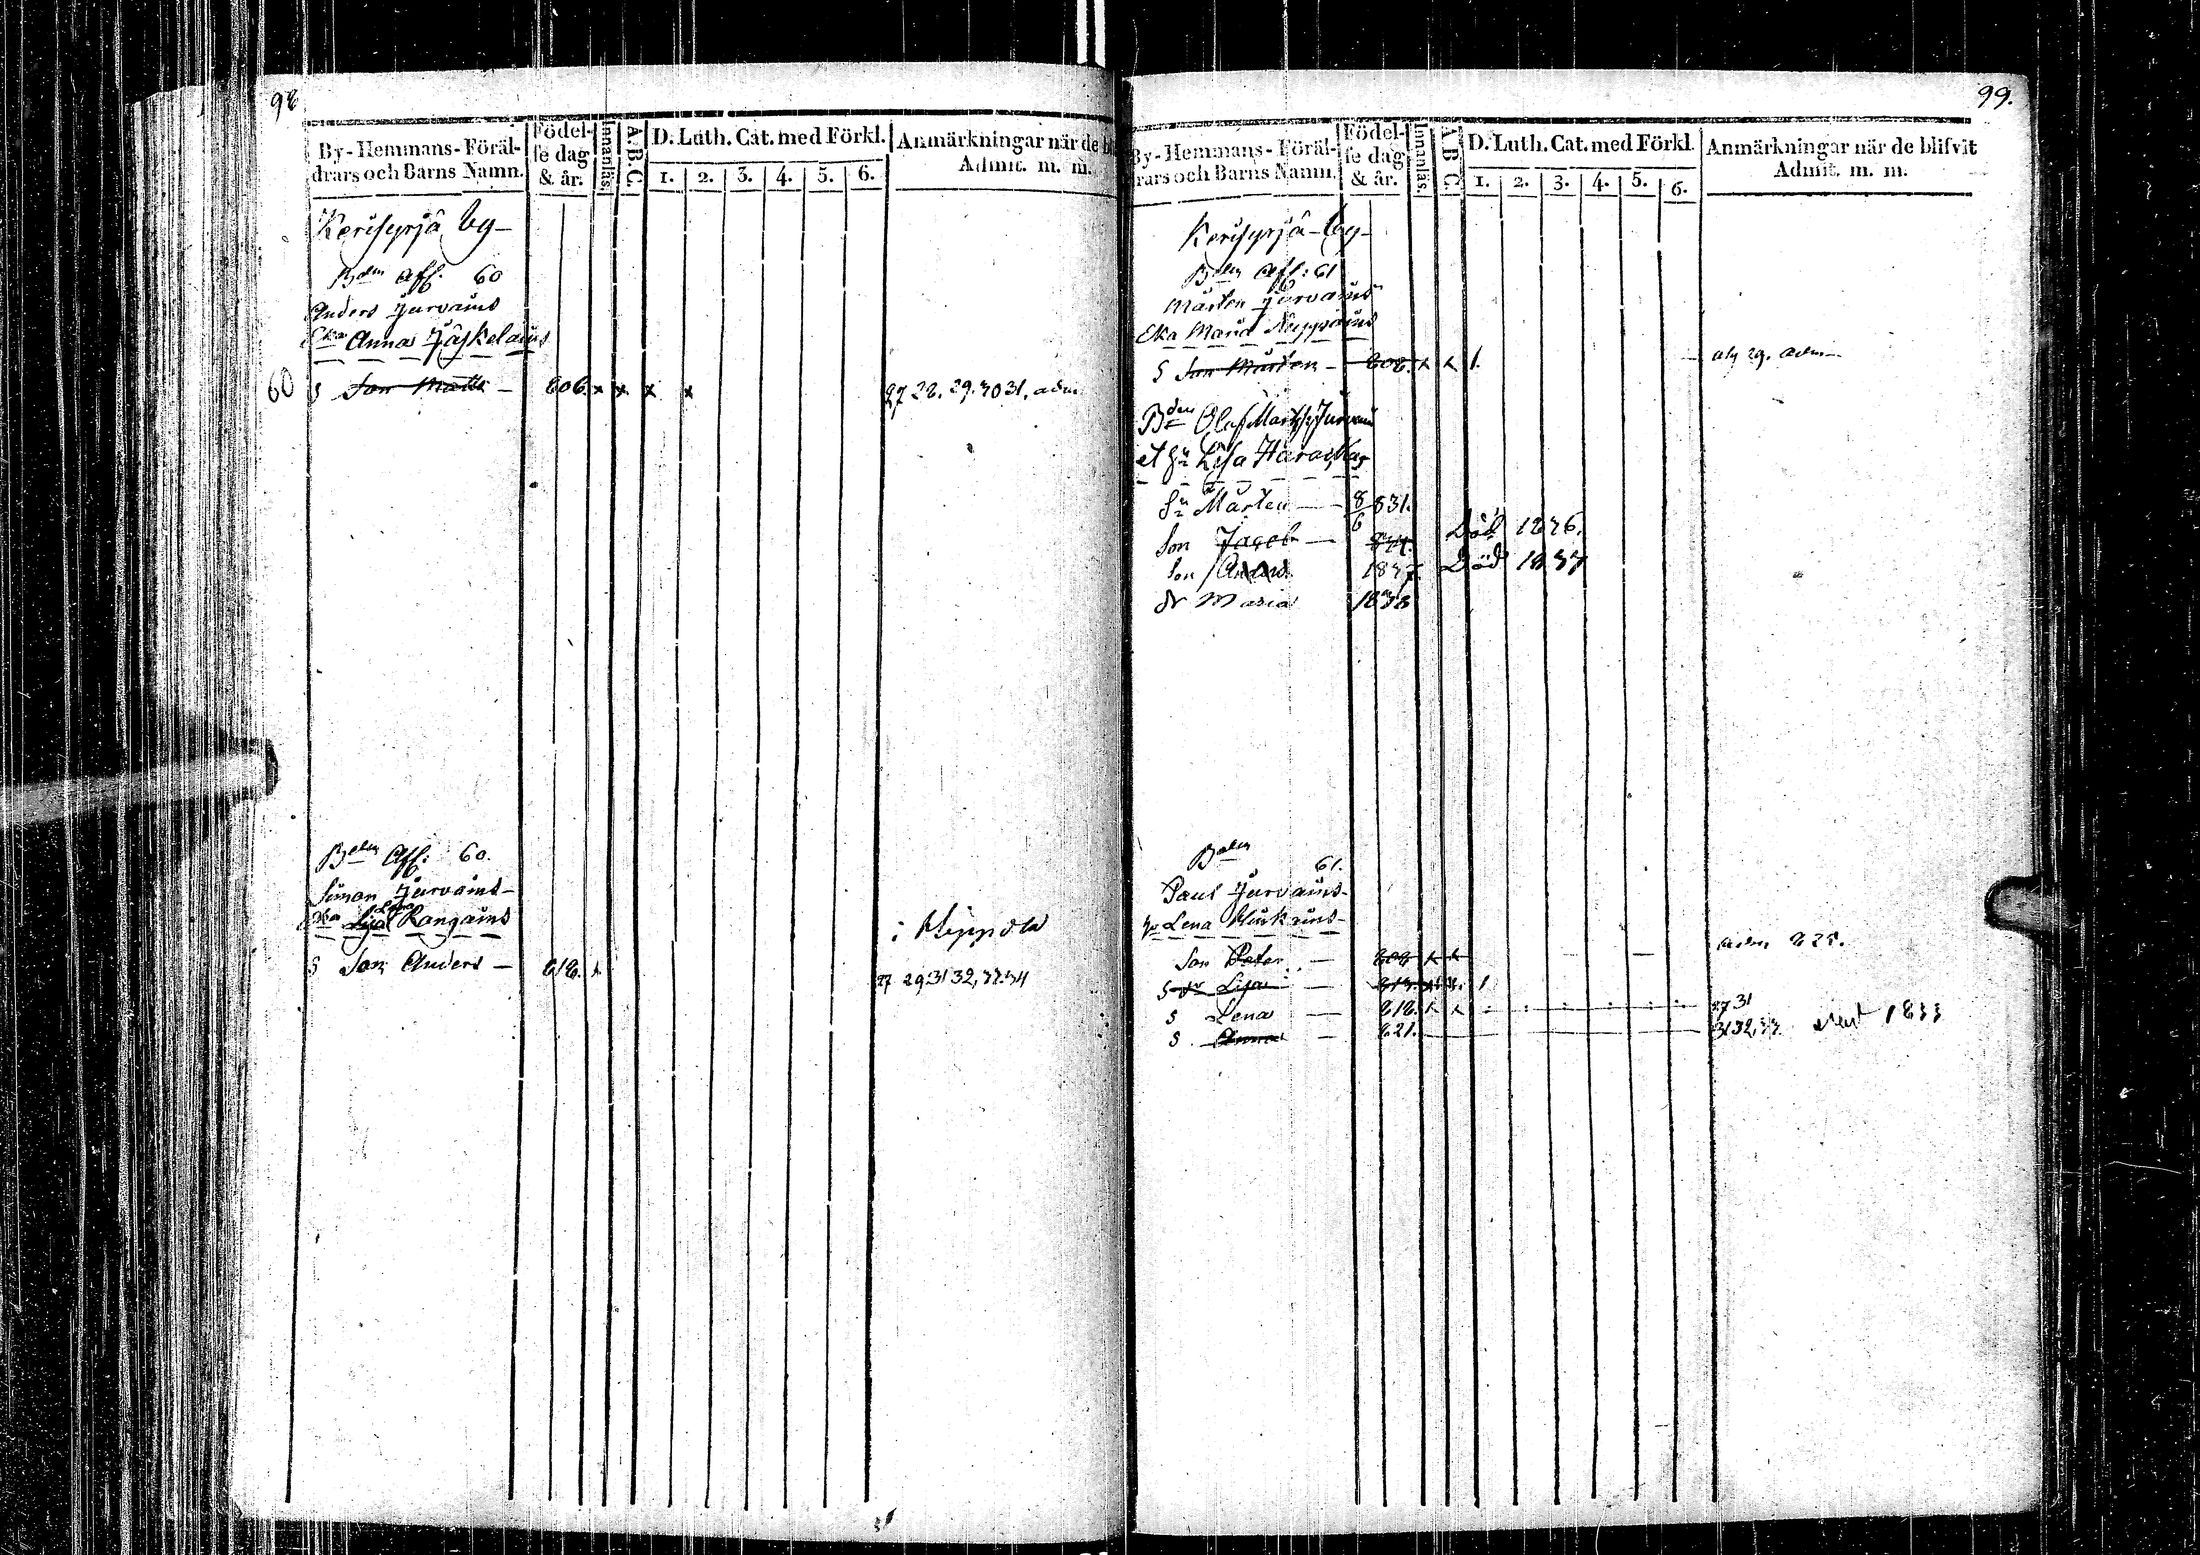 98
By-Hemmans-Föräl-
drars och Barns Namn.
Födel-
se dag
& år.
Innanläs.
A. B. C.
D. Luth. Cat. med Förkl.
1. 2. 3. 4. 5. 6.
Anmärkningar när de bl
Admit. m. m.
by
Bden Aff. 60
Anders Jurvains
Eka Anna Jäskelains
60 S Son Matts — 806. x x x x 27 28. 29. 30 31. adm
Bden Aff: 60.
Simon Jurvains
Eka Lisa Lena Rangains
i
S Son Anders — 818. x 27 29 31 32, 33. 34
99.
By-Hemmans-Föräl-
rars och Barns Namn.
Födel-
se dag
& år.
Innanläs.
A. B. C.
D. Luth. Cat. med Förkl.
1. 2. 3. 4. 5. 6.
Anmärkningar när de blifvit
Admit. m. m.
by
Bden Aff: 61
Mårten Jurvains
Eka Maria
S Son Mårten — 808. x x 1. 29. adm
Bden Olof Jurvain
et hu Lisa
Sn Mårten — 8/6 831.
Son Jacob — 834. Död 1836.
Son Anders 1837. Död 1837
dr Maria 1838
Bden
61.
Paul Jurvains
hu Lena
Son Peter — 808 x x — adm 825.
S dr Lisa — 813. x x. 1
S Lena — 818. x x 27 31
S Anna — 821. 31 32, 33. 1833